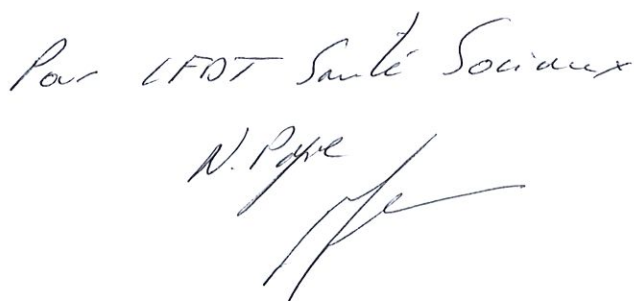 Pour CFDT Santé Sociaux
N.